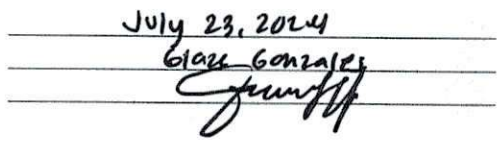 July 23, 2024
Glaze Gonzales